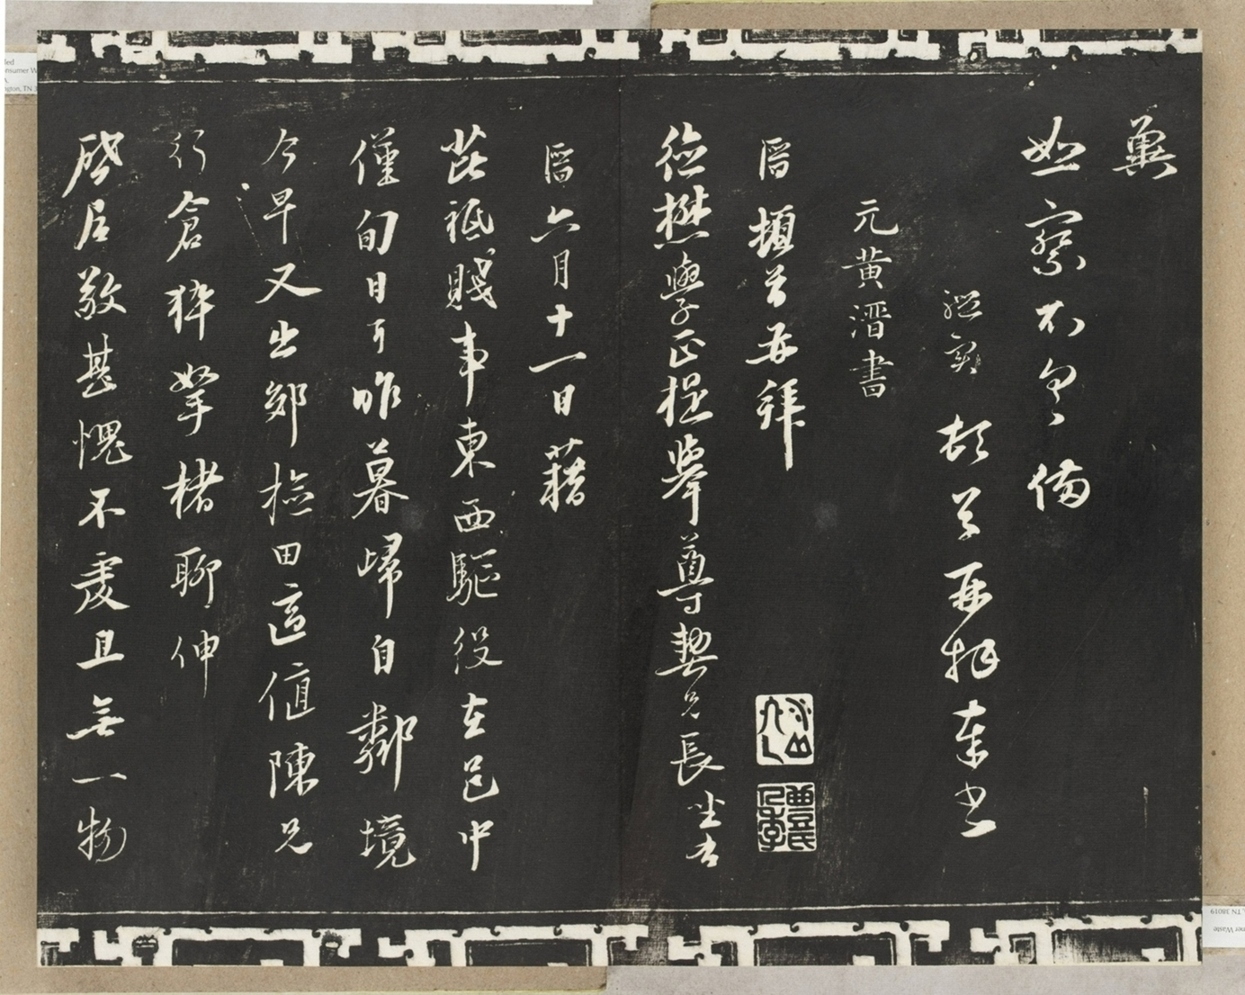 奠
如察不宣備
頓首再拜
元黃溍書
溍頓首再拜
德懋學正提舉尊契兄長坐右
溍六月十一日藉
芘祗賤事東西驅役在邑中
僅旬日耳昨暮歸自鄰境
今早又出郊撿田適值陳兄
行倉猝拏楮聊伸
啓居敬甚愧不虔且無一物